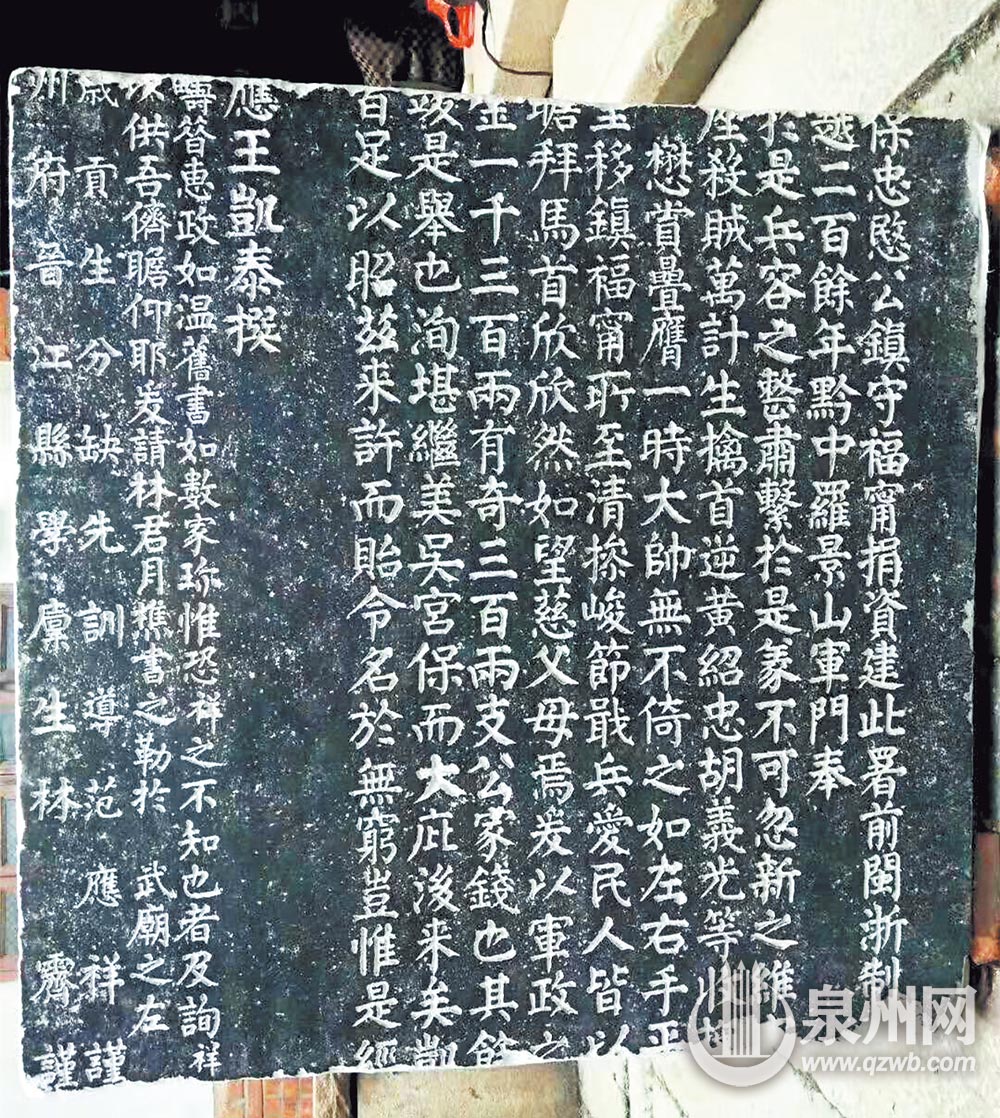 保忠愍公鎮守福甯捐資建此署前閩浙制
越二百餘年黔中羅景山軍門奉
於是兵容之整肅繫於是豖不可忽新之維
座殺賊萬計生擒首逆黃紹忠胡義光等收
懋賞疊膺一時大帥無不倚之如左右手平
至移鎮福甯所至清操峻節戢兵愛民人皆以
塘拜馬首欣欣然如望慈父母焉爰以軍政之
金一千三百兩有奇三百兩支公家錢也其餘
哉是舉也洵堪繼美吳宮保而大庇後来矣凱
百足以昭兹来許而貽令名於無窮豈惟是經
應王凱泰撰
疇昔惠政如温舊書如數家珍惟恐祥之不知也者及詢祥
供吾儕瞻仰耶爰請林君月樵書之勒於 武廟之左
歲貢生分缺先訓導范應祥謹
州府晉江縣學廩生林霽謹
泉州网
www.qzwb.com